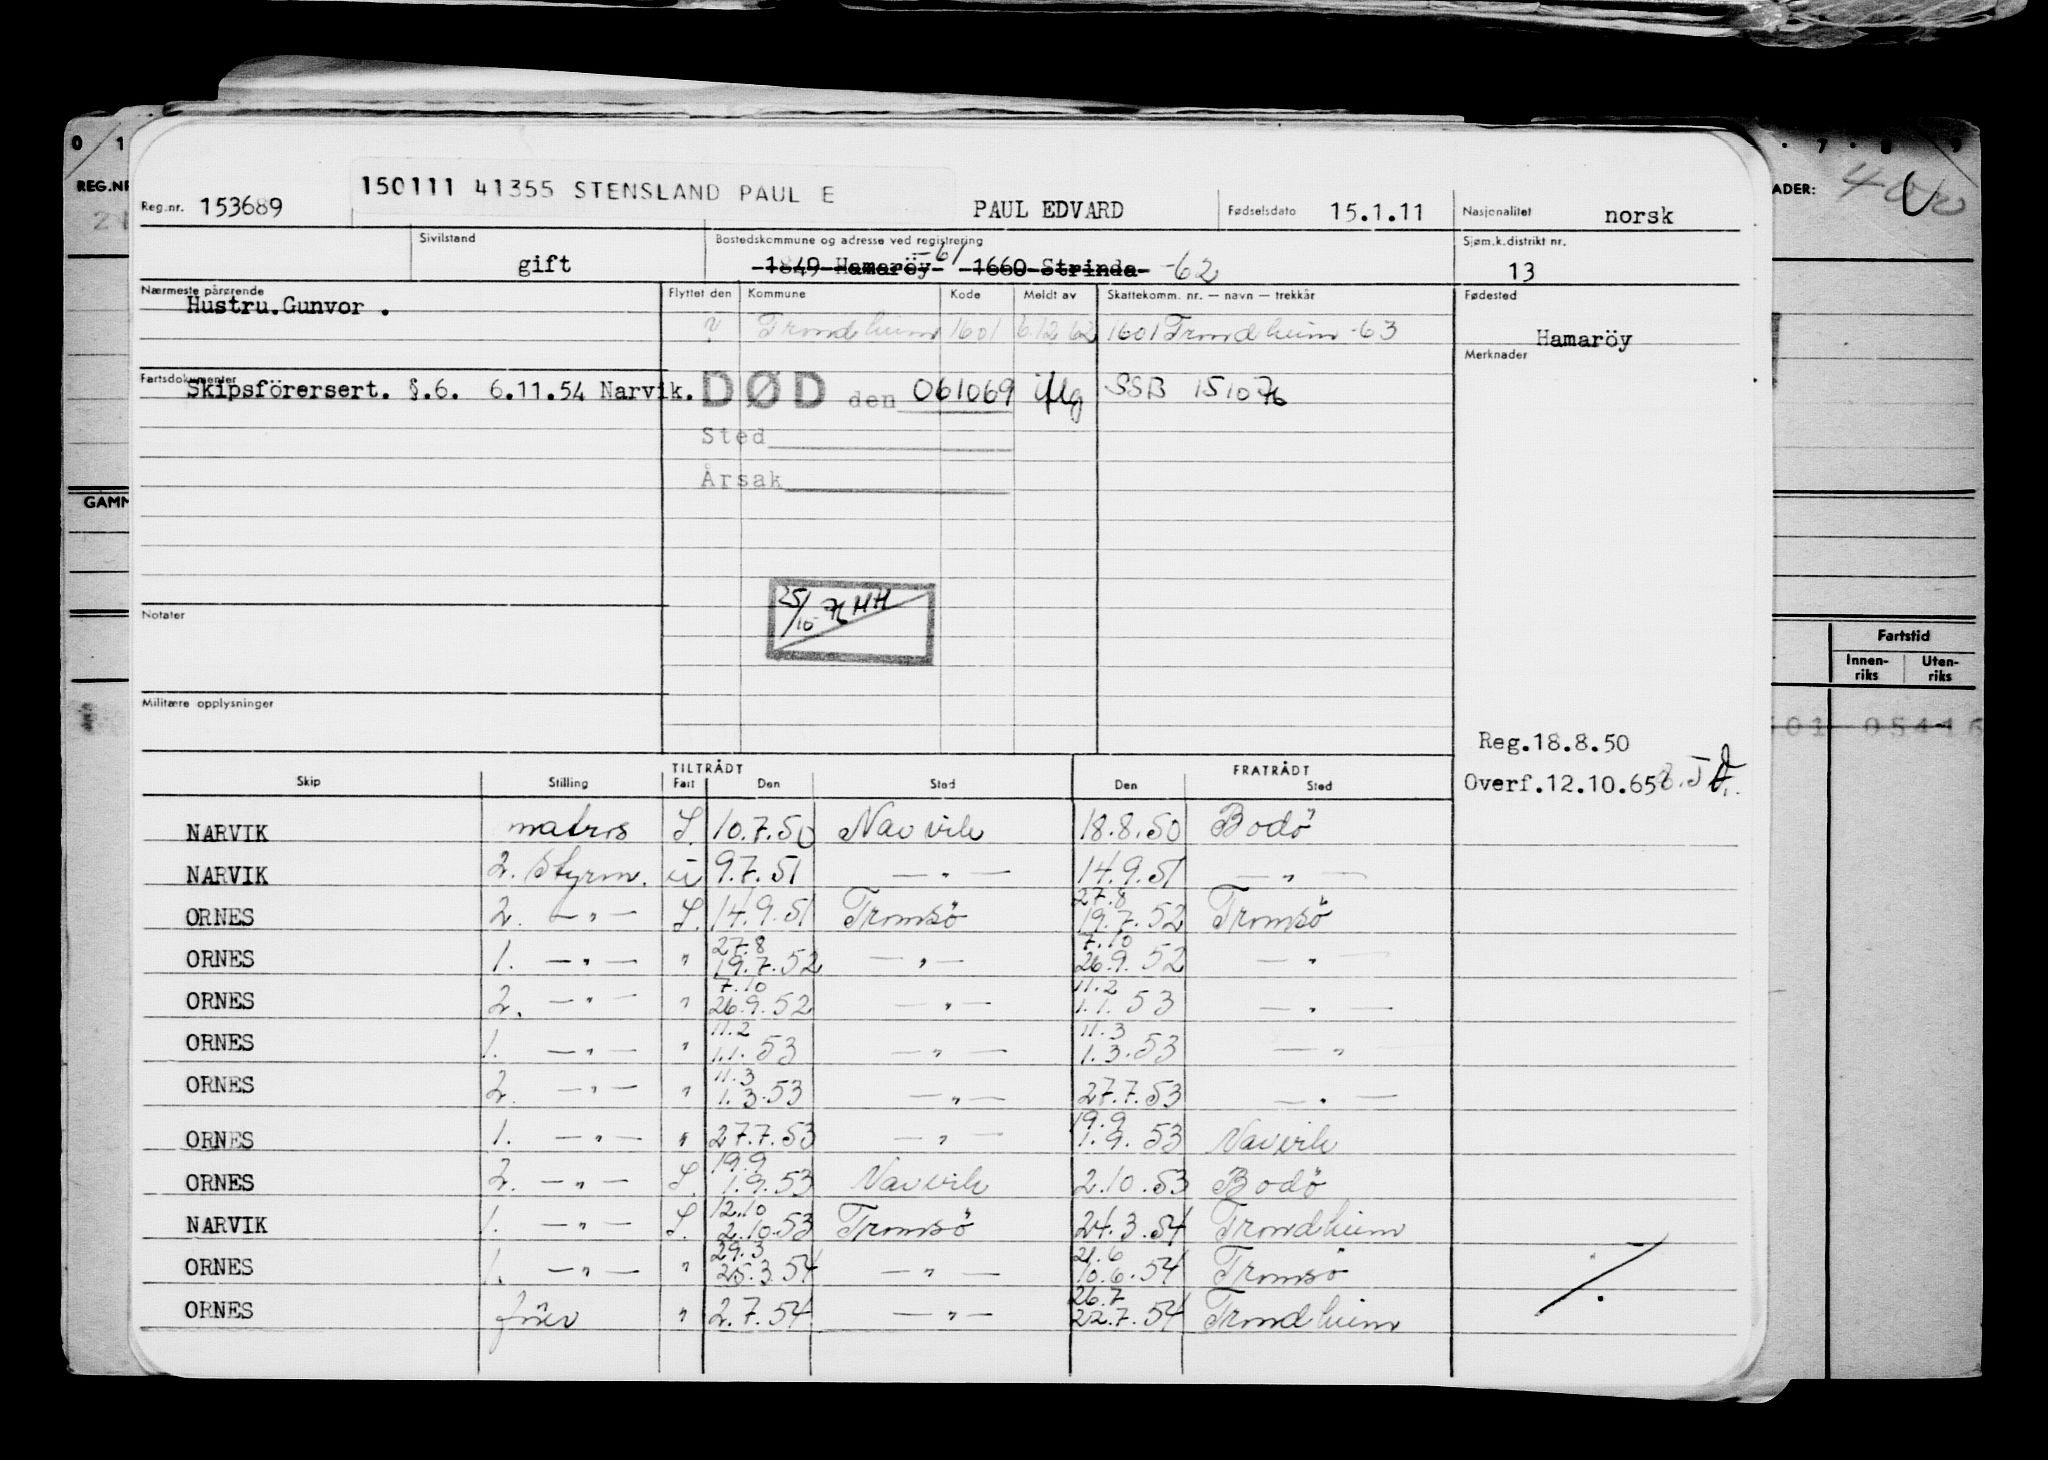 0 1 . 7 . 8 9
REG.NR
ADER:
150111 41355 STENSLAND PAUL E
Reg.nr. 153689 PAUL EDVARD Fødselsdato 15.1.11 Nasjonalitet norsk
Sivilstand gift Bostedskommune og adresse ved registrering Sjøm.k.distrikt nr. 13
1849 Hamaröy -61 1660 Strinda -62
Nærmeste pårørende Flyttet den Kommune Kode Meldt av Skattekomm. nr. — navn — trekkår Fødested
Hustru.Gunvor .
? Trondheim 1601 6.12 62 1601 Trondheim -63 Hamaröy
Merknader
Fartsdokumenter
Skipsförersert. §.6. 6.11.54 Narvik. DØD den 061069 SSB 151076
Sted
Årsak
GAMM
25/10 76 HH
Notater
Fartstid
Innen-riks Uten-riks
Militære opplysninger
Reg.18.8.50
Overf.12.10.65
TILTRÅDT FRATRÅDT
Skip Stilling Fart Den Sted Den Sted
NARVIK matros L. 10.7.50 Narvik 18.8.50 Bodö
NARVIK 2. styrm. i 9.7.51 — " — 14.9.51 — " —
ORNES 2. — " — L. 14.9.51 Tromsö 27.8 19.7.52 Tromsö
ORNES 1. — " — " 27.8 19.7.52 — " — 7.10 26.9.52 — " —
ORNES 2. — " — " 7.10 26.9.52 — " — 11.2 1.1.53 — " —
ORNES 1. — " — " 11.2 1.1.53 — " — 11.3 1.3.53 — " —
ORNES 2. — " — " 11.3 1.3.53 — " — 27.7.53 — " —
ORNES 1. — " — " 27.7.53 — " — 19.9 1.9.53 Narvik
ORNES 2. — " — L. 19.9 1.9.53 Narvik 2.10.53 Bodö
NARVIK 1. — " — L. 12.10 2.10.53 Tromsö 24.3.54 Trondheim
ORNES 1. — " — " 29.3 25.3.54 — " — 21.6 10.6.54 Tromsö
ORNES förer " 2.7.54 — " — 26.7 22.7.54 Trondheim